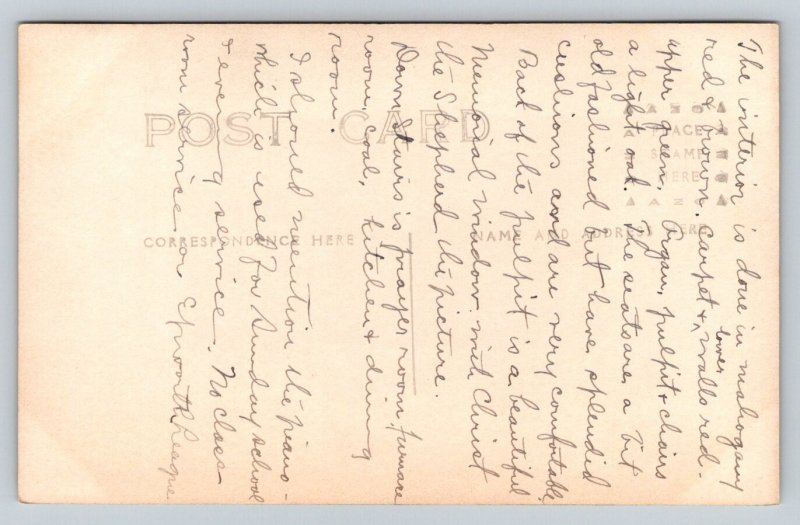 The interior is done in mahogany
red & brown. Carpet & lower walls red-
upper green, Organ, pulpit & chairs
a light oak. The seats are a bit
old fashioned but have splendid
cushions and are very comfortable,
Back of the pulpit is a beautiful
Memorial window with Christ
the Shepherd the picture.
Down stairs is prayer room, furnace
room, coal, kitchen & dining
room.
I should mention the piano-
which is used for Sunday school
& evening service. No class-
room service or Epworth League.
POST CARD
CORRESPONDENCE HERE
NAME AND ADDRESS HERE
AZO
PLACE
STAMP
HERE
AZO